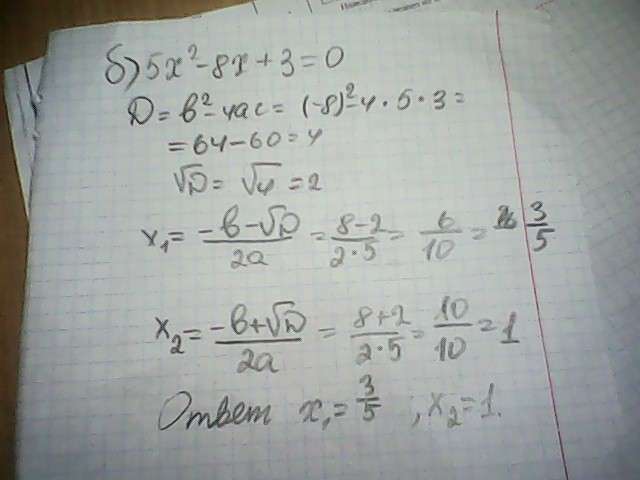 б) 5x² - 8x + 3 = 0
D = b² - 4ac = (-8)² - 4 · 5 · 3 =
= 64 - 60 = 4
√D = √4 = 2
x₁ = (-b - √D)/(2a) = (8 - 2)/(2 · 5) = 6/10 = 3/5
x₂ = (-b + √D)/(2a) = (8 + 2)/(2 · 5) = 10/10 = 1
Ответ x₁ = 3/5 , x₂ = 1.